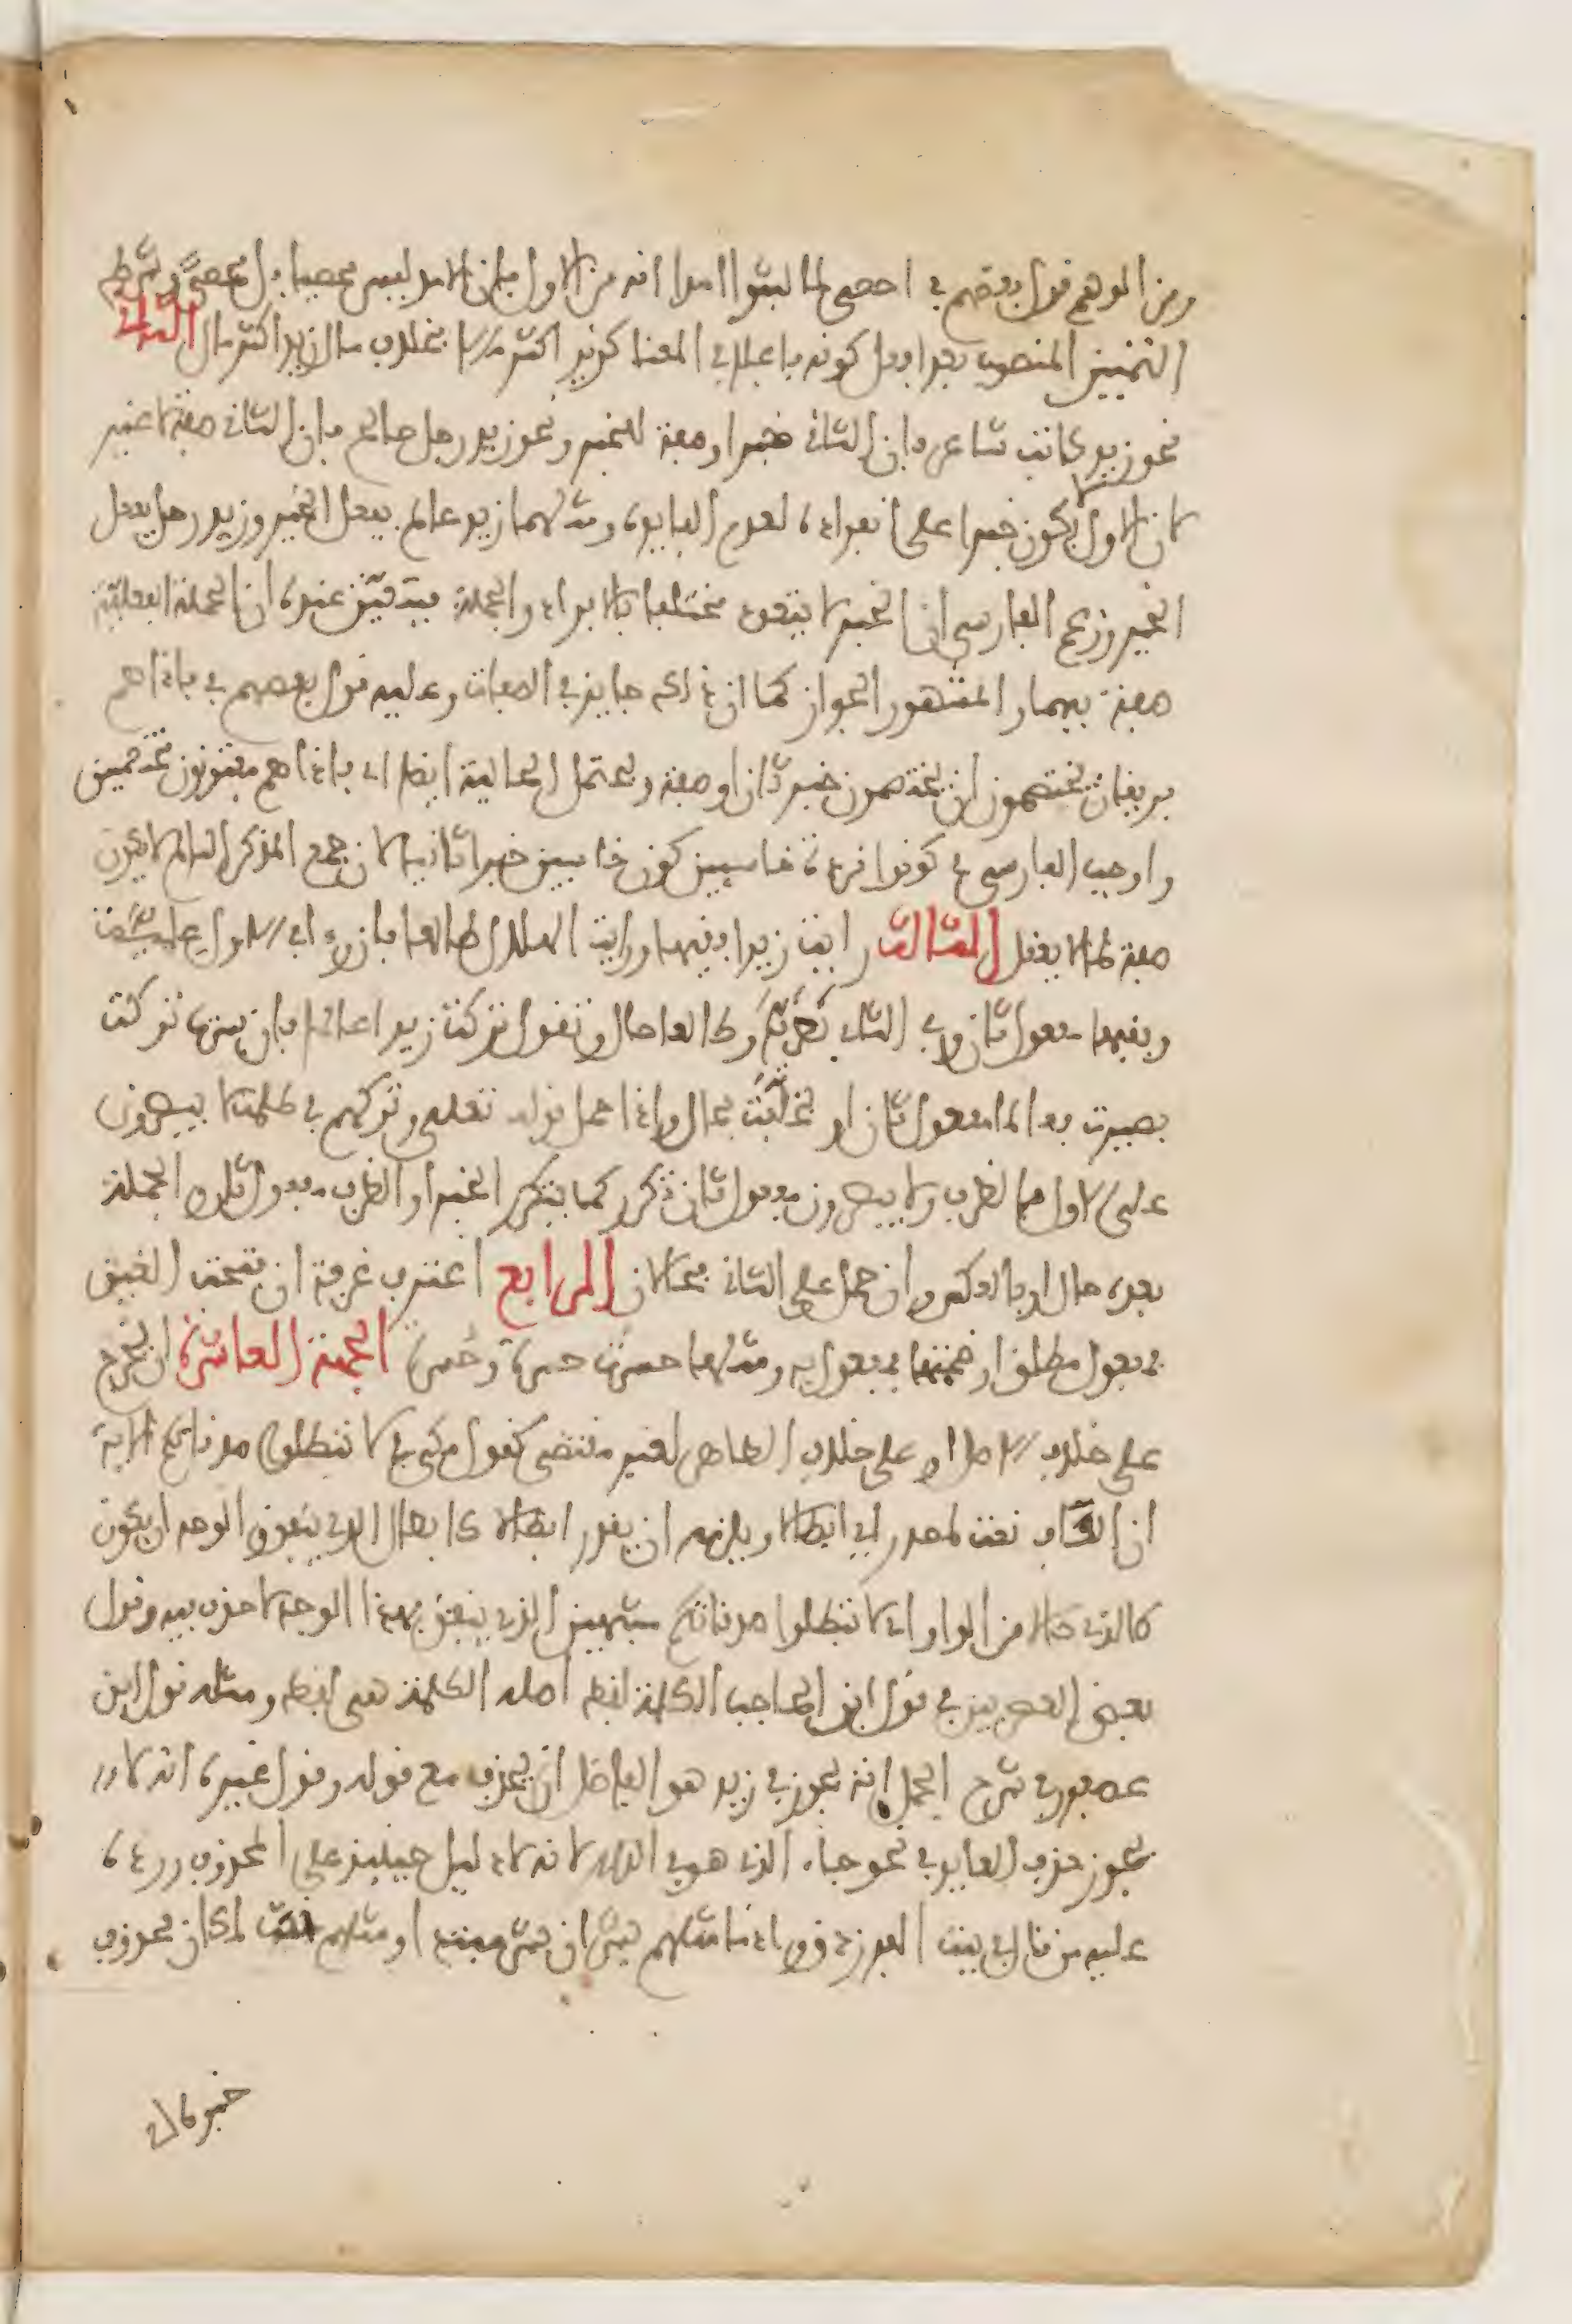 ومن الوهم قول بعضهم في احصى لما لبثوا امدا انه من الاول فان الامد ليس محصيا بل محصىً وشرط
التمييز المنصوب بعد افعل كونه فاعلا في المعنا كزيد اكثر مالا بخلاف مال زيد اكثر مال الثاني
نحو زيد كاتب شاعر فان الثاني خبر او صفة للخبر ونحو زيد رجل صالح فان الثاني صفة لا غير
لان الاول لا يكون خبرا على انفراده لعدم الفايدة ومثلهما زيد عالم يفعل الخير وزيد رجل يفعل
الخير وزعم الفارسي ان الخبر لا يتعدد مختلفا بالافراد والجملة فيتعيّن عنده ان الجملة الفعلية
صفة فيهما والمشهور الجواز كما ان ذلك جايز في الصفات وعليه قول بعضهم في فاذا هم
فريقان يختصمون ان يختصمون خبر ثان او صفة ويحتمل الحالية ايضا اي فاذا هم مفترقون مختصمين
واوجب الفارسي في كونوا قردة خاسيين كون خاسيين خبرا ثانيا لان جمع المذكر السالم لا يكون
صفة لما لا يعقل الثالث رايت زيدا فقيها ورايت الهلال طالعا فان رءا في الاول علمية
وفقيها مفعول ثان وفي الثاني بصرية وطالعا حال وتقول تركت زيدا عالما فان فسرتها تركت
بصيرت فعالما مفعول ثان او بخلّفت فحال واذا حمل قوله تعلى وتركهم في ظلمت لا يبصرون
على الاول فالظرف ولا يبصرون مفعول ثان تكرر كما يتكرر الخبر او الظرف مفعول ثان والجملة
بعده حال او بالعكس وان حمل على الثاني فحالان الرابع اغترف غرفة ان فتحت الغين
فمفعول مطلق او ضممتها فمفعول به ومثلهما حسوت حسوة وحسوة الجهة العاشرة ان يخرج
على خلاف الاصل او على خلاف الظاهر لغير مقتضى كقول مكي في لا تبطلوا صدقاتكم الاية
ان الكاف نعت لمصدر اي ابطالا ويلزمه ان يقدر ابطالا كابطال الذي ينفق والوجه ان يكون
كالذي حالا من الواو اي لا تبطلوا صدقاتكم مشبهين الذي ينفق فهذا الوجه لا حذف فيه وقول
بعض العصريين في قول ابن الحاجب الكلمة لفظ اصله الكلمة هي لفظ ومثله قول ابن
عصفور في شرح الجمل انه يجوز في زيد هو الفاضل ان يحذف مع قوله وقول غيره انه لا
يجوز حذف العايد في نحو جاء الذي هو في الدار لانه لا دليل حينيذ على المحذوف ورده
عليه من قال في بيت الفرزدق واذ ما مثلهم بشر ان بشر مبتدء او مثلهم نعت لمكان محذوف
خبره اي